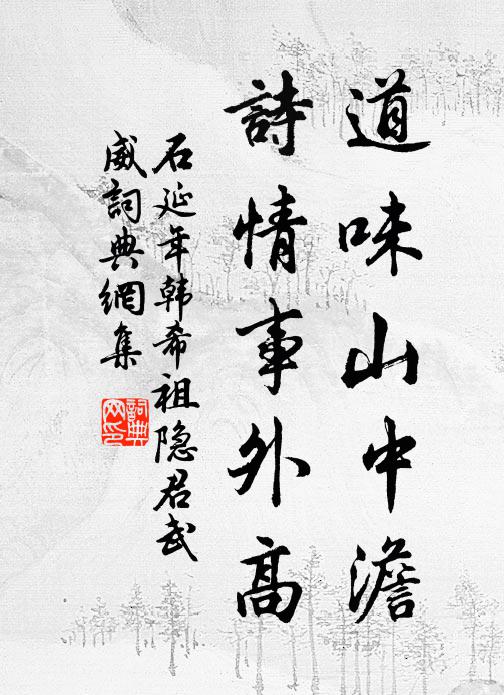 道味山中澹
詩情事外高
石延年韩希祖隐君武
威詞典網集
詞典網印